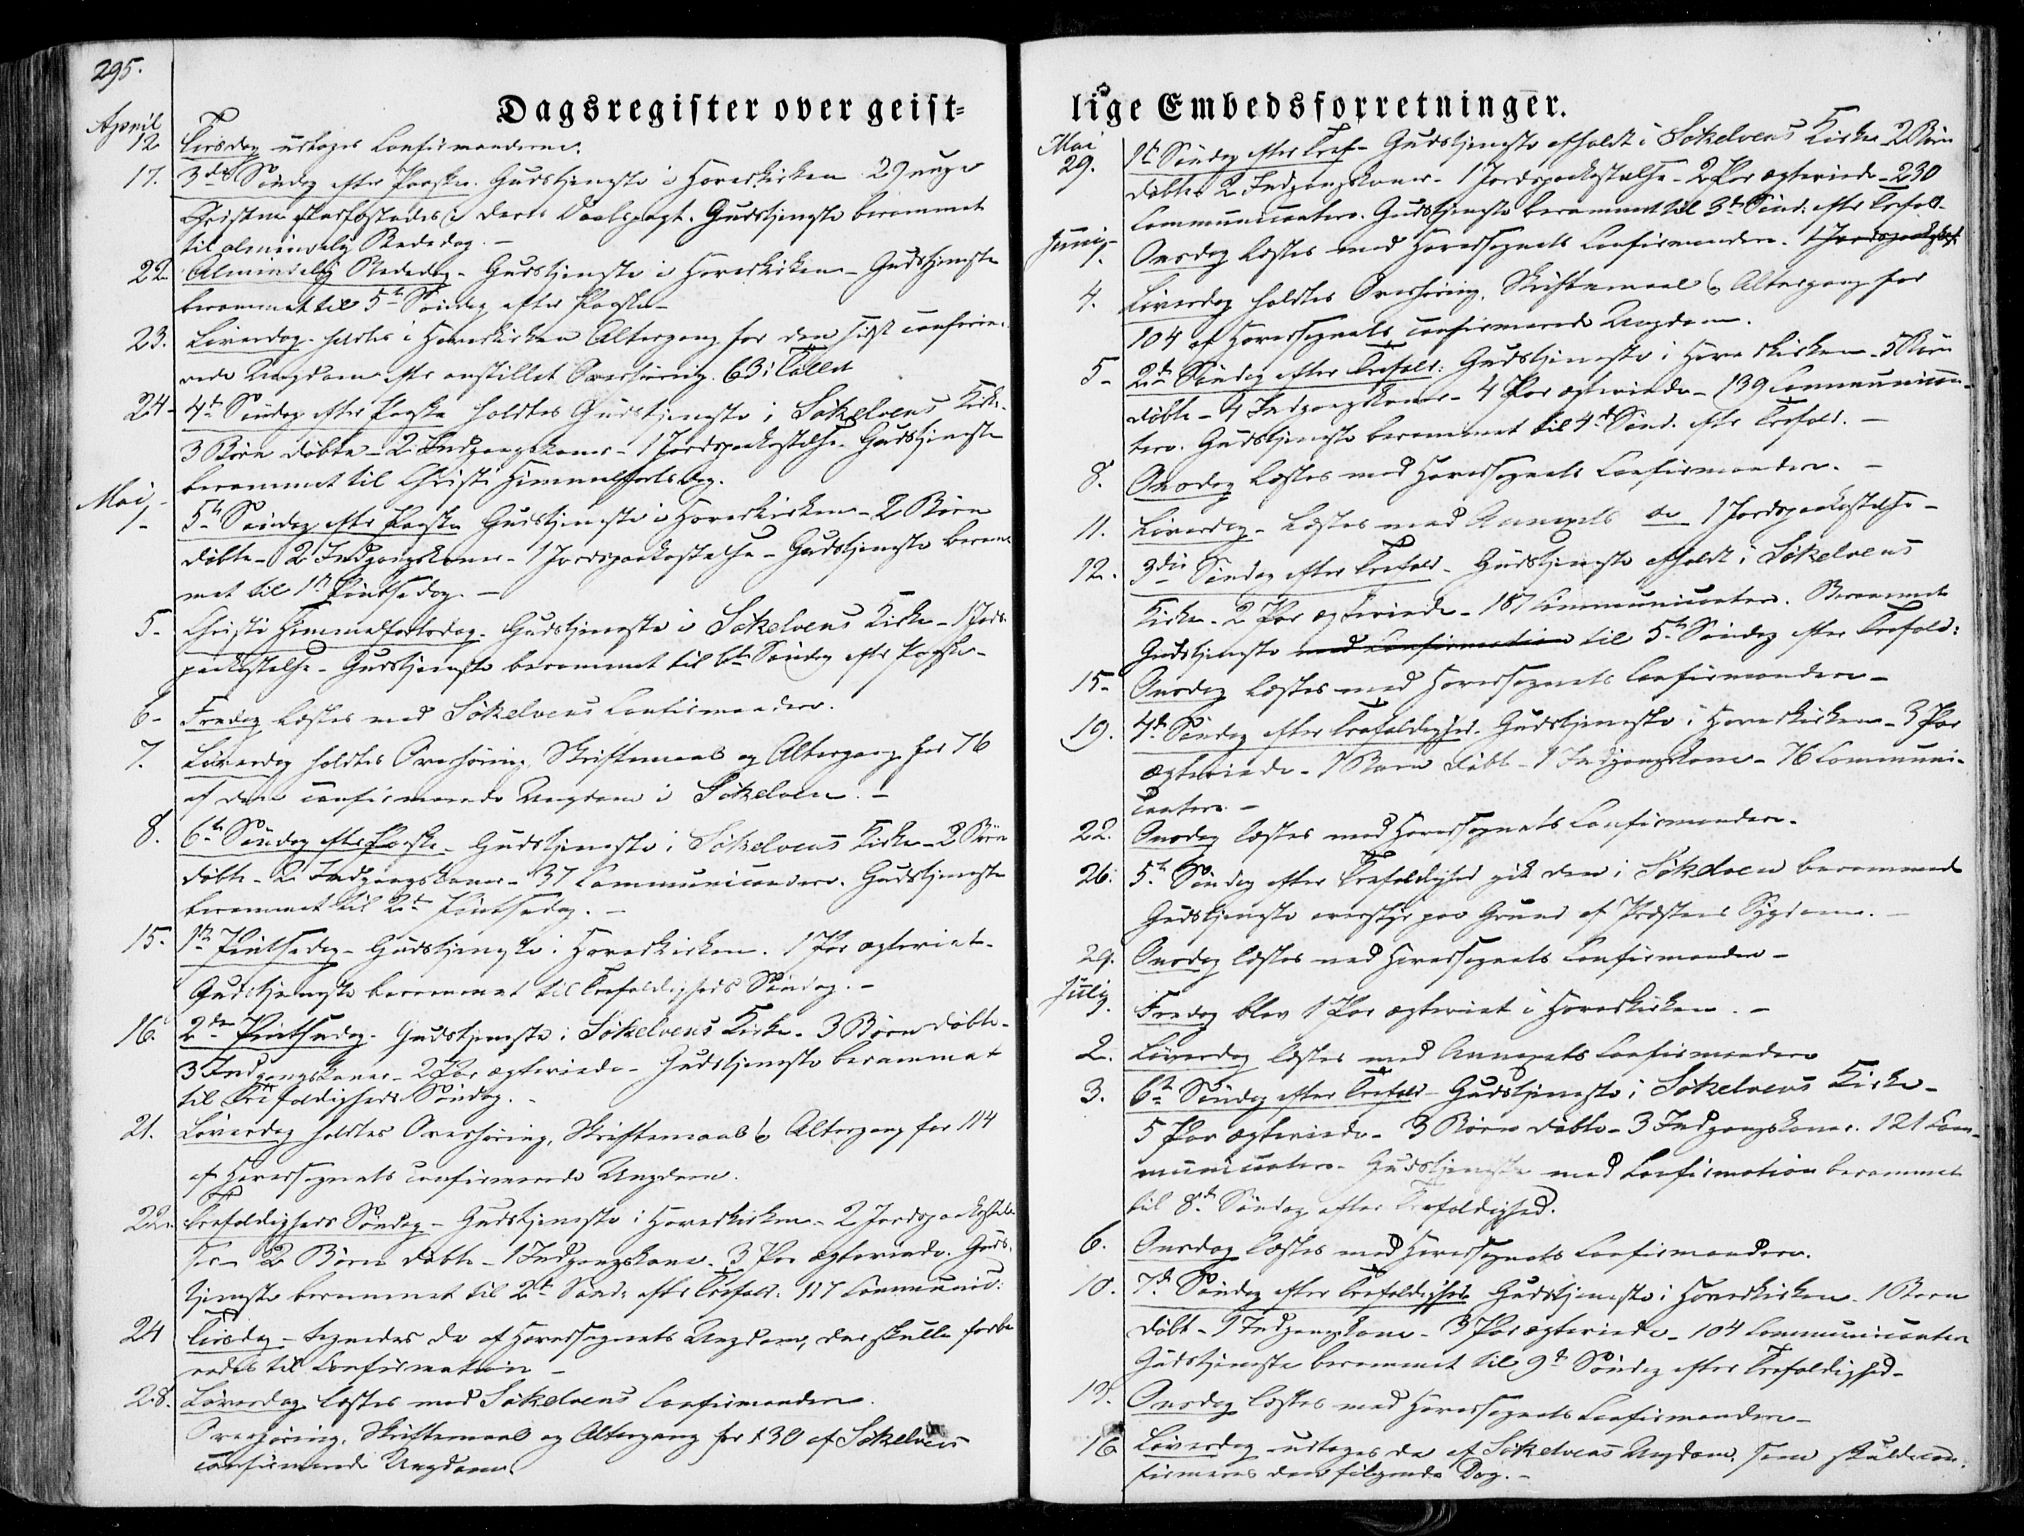 295.
Dagsregister over geist-
April
12 Tirsdag udtoges Confirmanderne.
17. 3die Søndag efter Paaske. Gudstjeneste i Hovedkirken 29 unge
Christne stadfæstedes i deres Daabspagt. Gudstjeneste berammet
til almindelig Bededag. -
22. Almindelig Bededag - Gudstjeneste i Hovedkirken - Gudstjeneste
berammet til 5te Søndag efter Paaske -
23. Løverdag - holdtes i Hovedkirken Altergang for den sidst confirme-
rede Ungdom efter anstillet Overhøring. 63 i Tallet
24 - 4de Søndag efter Paaske holdtes Gudstjeneste i Søkelvens Kirke -
3 Børn døbte - 2 Indgangskoner - 1 Jordspaakastelse - Gudstjeneste
berammet til Christi Himmelfartsdag.
Mai
1 - 5te Søndag efter Paaske Gudstjeneste i Hovedkirken - 2 Børn
døbte - 2 Indgangskoner - 1 Jordspaakastelse - Gudstjeneste beram-
met til 1ste Pintsedag. -
5 - Christi Himmelfartsdag - Gudstjeneste i Søkelvens Kirke - 1 Jords-
paakastelse - Gudstjeneste berammet til 6te Søndag efter Paaske -
6 - Fredag læstes med Søkelvens Confirmander.
7. Løverdag holdtes Overhøring, Skriftemaal og Altergang for 76
af den confirmerede Ungdom i Søkelven. -
8. 6te Søndag efter Paaske - Gudstjeneste i Søkelvens Kirke - 2 Børn
døbte - 2 Indgangskoner - 37 Communicantere. Gudstjeneste
berammet til 2den Pintsedag. -
15. 1ste Pintsedag - Gudstjeneste i Hovedkirken. 1 Par ægteviet -
Gudstjeneste berammet til Trefoldigheds Søndag. -
16. 2den Pintsedag - Gudstjeneste i Søkelvens Kirke - 3 Børn døbte -
3 Indgangskoner - 2 Par ægteviede - Gudstjeneste berammet
til Trefoldigheds Søndag. -
21. Løverdag holdtes Overhøring, Skriftemaal og Altergang for 114
af Hovedsognets confirmerede Ungdom.
22. Trefoldigheds Søndag - Gudstjeneste i Hovedkirken - 2 Jordspaakastel-
ser - 2 Børn døbte - 1 Indgangskone - 3 Par ægteviede. Guds-
tjeneste berammet til 2den Sønd: efter Trefold: 117 Communic:
24 Tirsdag - tegnedes de af Hovedsognets Ungdom, der skulle forbe-
redes til Confirmation -
28. Løverdag læstes med Søkelvens Confirmander.
Overhøring, Skriftemaal og Altergang for 130 af Søkelvens
confirmerede Ungdom.
lige Embedsforretninger.
Mai
29. 1ste Søndag efter Tref - Gudstjeneste afholdt i Søkelvens Kirke - 2 Børn
døbte 2 Indgangskoner - 1 Jordspaakastelse - 2 Par ægteviede - 230
Communicantere. Gudstjeneste berammet til 3die Sønd: efter Trefold -
Junij
1. Onsdag læstes med Hovedsognets Confirmander. 1 Jordspaakast
4. Løverdag holdtes Overhøring, Skriftemaal og Altergang for
104 af Hovedsognets confirmerede Ungdom.
5 - 2den Søndag efter Trefold: Gudstjeneste i Hovedkirken - 5 Børn
døbte - 4 Indgangskoner - 4 Par ægteviede - 139 Communican-
tere. Gudstjeneste berammet til 4de Sønd. efter Trefold. -
8. Onsdag læstes med Hovedsognets Confirmander. -
11. Løverdag - læstes med Annexets 1 Jordspaakastelse -
12. 3die Søndag efter Trefold - Gudstjeneste afholdt i Søkelvens
Kirke - 2 Par ægteviede - 187 Communicantere. Berammet
Gudstjeneste med Confirmation til 5te Søndag efter Trefold:
15 - Onsdag læstes med Hovedsognets Confirmander -
19. 4de Søndag efter Trefoldighed - Gudstjeneste i Hovedkirken - 3 Par
ægteviede - 1 Barn døbt - 1 Indgangskone - 76 Communi-
cantere. -
22. Onsdag læstes med Hovedsognets Confirmander.
26. 5te Søndag efter Trefoldighed gik den i Søkelven berammede
Gudstjeneste overstyr paa Grund af Præstens Sygdom. -
29. Onsdag læstes med Hovedsognets Confirmander -
Julij
1. Fredag blev 1 Par ægteviet i Hovedkirken. -
2. Løverdag læstes med Annexets Confirmander
3. 6te Søndag efter Trefold - Gudstjeneste i Søkelvens Kirke -
5 Par ægteviede - 3 Børn døbte - 3 Indgangskoner. 121 Com-
municantere - Gudstjeneste med Confirmation berammet
til 8de Søndag efter Trefoldighed.
6. Onsdag læstes med Hovedsognets Confirmander.
10. 7de Søndag efter Trefoldighed Gudstjeneste i Hovedkirken. 1 Barn
døbt - 1 Indgangskone - 3 Par ægteviede - 104 Communicantere
Gudstjeneste berammet til 9de Søndag efter Trefoldighed -
13. Onsdag læstes med Hovedsognets Confirmander -
16 Løverdag udtoges de af Søkelvens Ungdom, som skulde con-
firmeres den følgende Dag. -